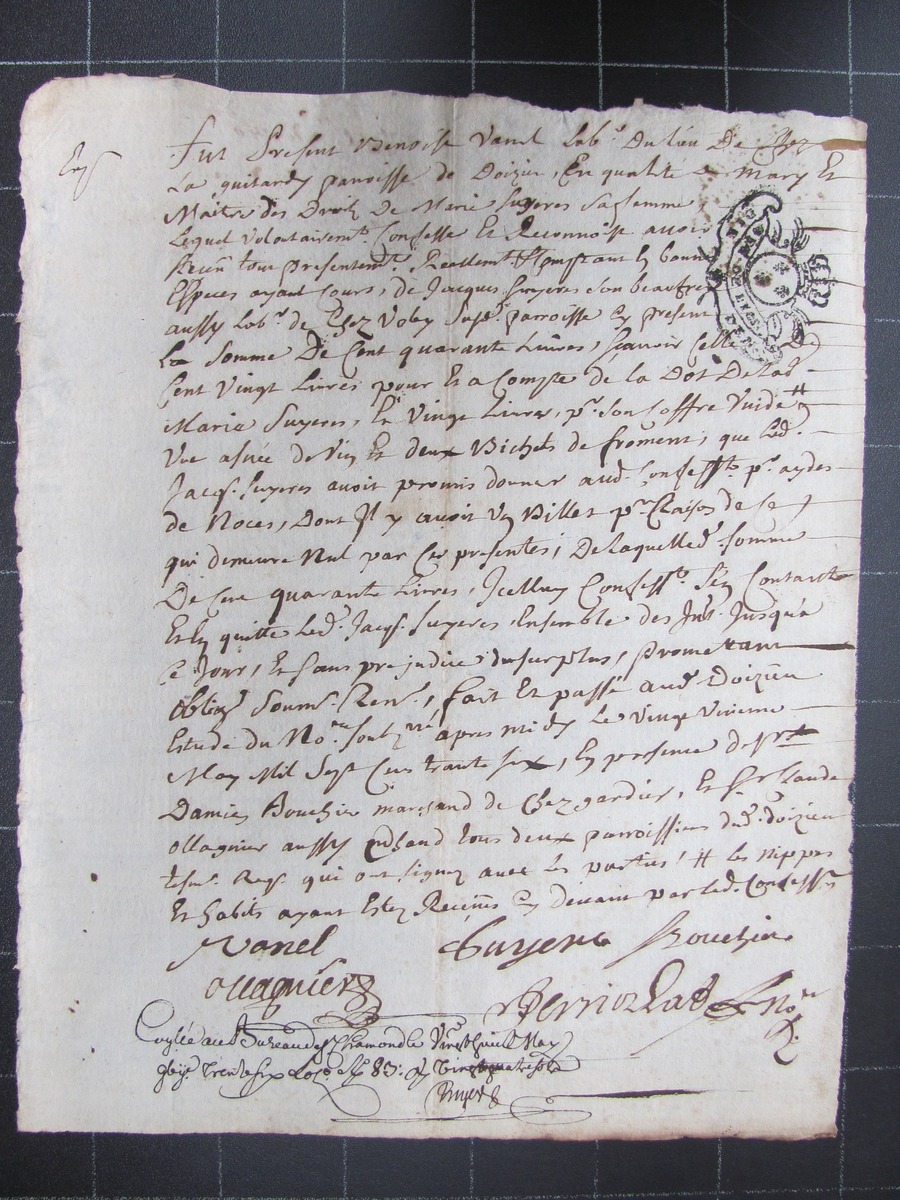 Fut Present Benoist Vanel Lab.r Du lieu De Chez
La guitardy parroisse de Doizieu, En qualité de Mary Et
Maitre des Droits De Marie Suyeres Sa femme,
Lequel Volontairemt. Confesse Et Reconnoist avoir
Receu tout presentemt. Reallemt. Comptant En bonnes
Especes ayant Cours, de Jacques Suyeres Son beaufrere
aussy Lab.r de Chez Voley Susd. parroisse cy present
La Somme De Cent quarante Livres, Scavoir Celle De
Cent Vingt Livres pour Et a Compte de la Dot De lad.
Marie Suyeres, Et Vingt Livres, pr. Son Coffre Vuide #
Une asnée de Vin Et deux Bichets de froment, que Led.
Jacqs. Suyeres avoit promis donner aud. Confesst. pr. aydes
de Noces, Dont Il y avoit Un Billet pr. Raison de Ce
qui demeure Nul par Ces presentes; De laquelle d. Somme
De Cent quarante Livres, Icelluy Confesst. S'en Contante
Et En quitte Led. Jacqs. Suyeres, Ensemble des Int. Jusqu'a
Ce Jour, Et Sans prejudice du Surplus, Promettant
Oblige. Soums. Renc., fait Et passé aud. Doizieu
Estude du No.re Soubzné apres midy Le Vingt Uniéme
May Mil Sept Cens trante Six, En presence de Sr.
Damien Bouchier marchand de Chez gardier, Et Sr Claude
Ollagnier aussy mchand tous deux parroissiens dud. Doizieu
tesm. Reqs. qui ont Signez avec Les parties; # Les Nippes
Et habits ayant Estez Receues Cy devant par Led. Confesst
Vanel Suyere Bouchier
Ollagnier Perriolat No.re
Controllé au Bureau de St Chamond le Vingt huit May
trente Six 83: Vingt quatre Sols